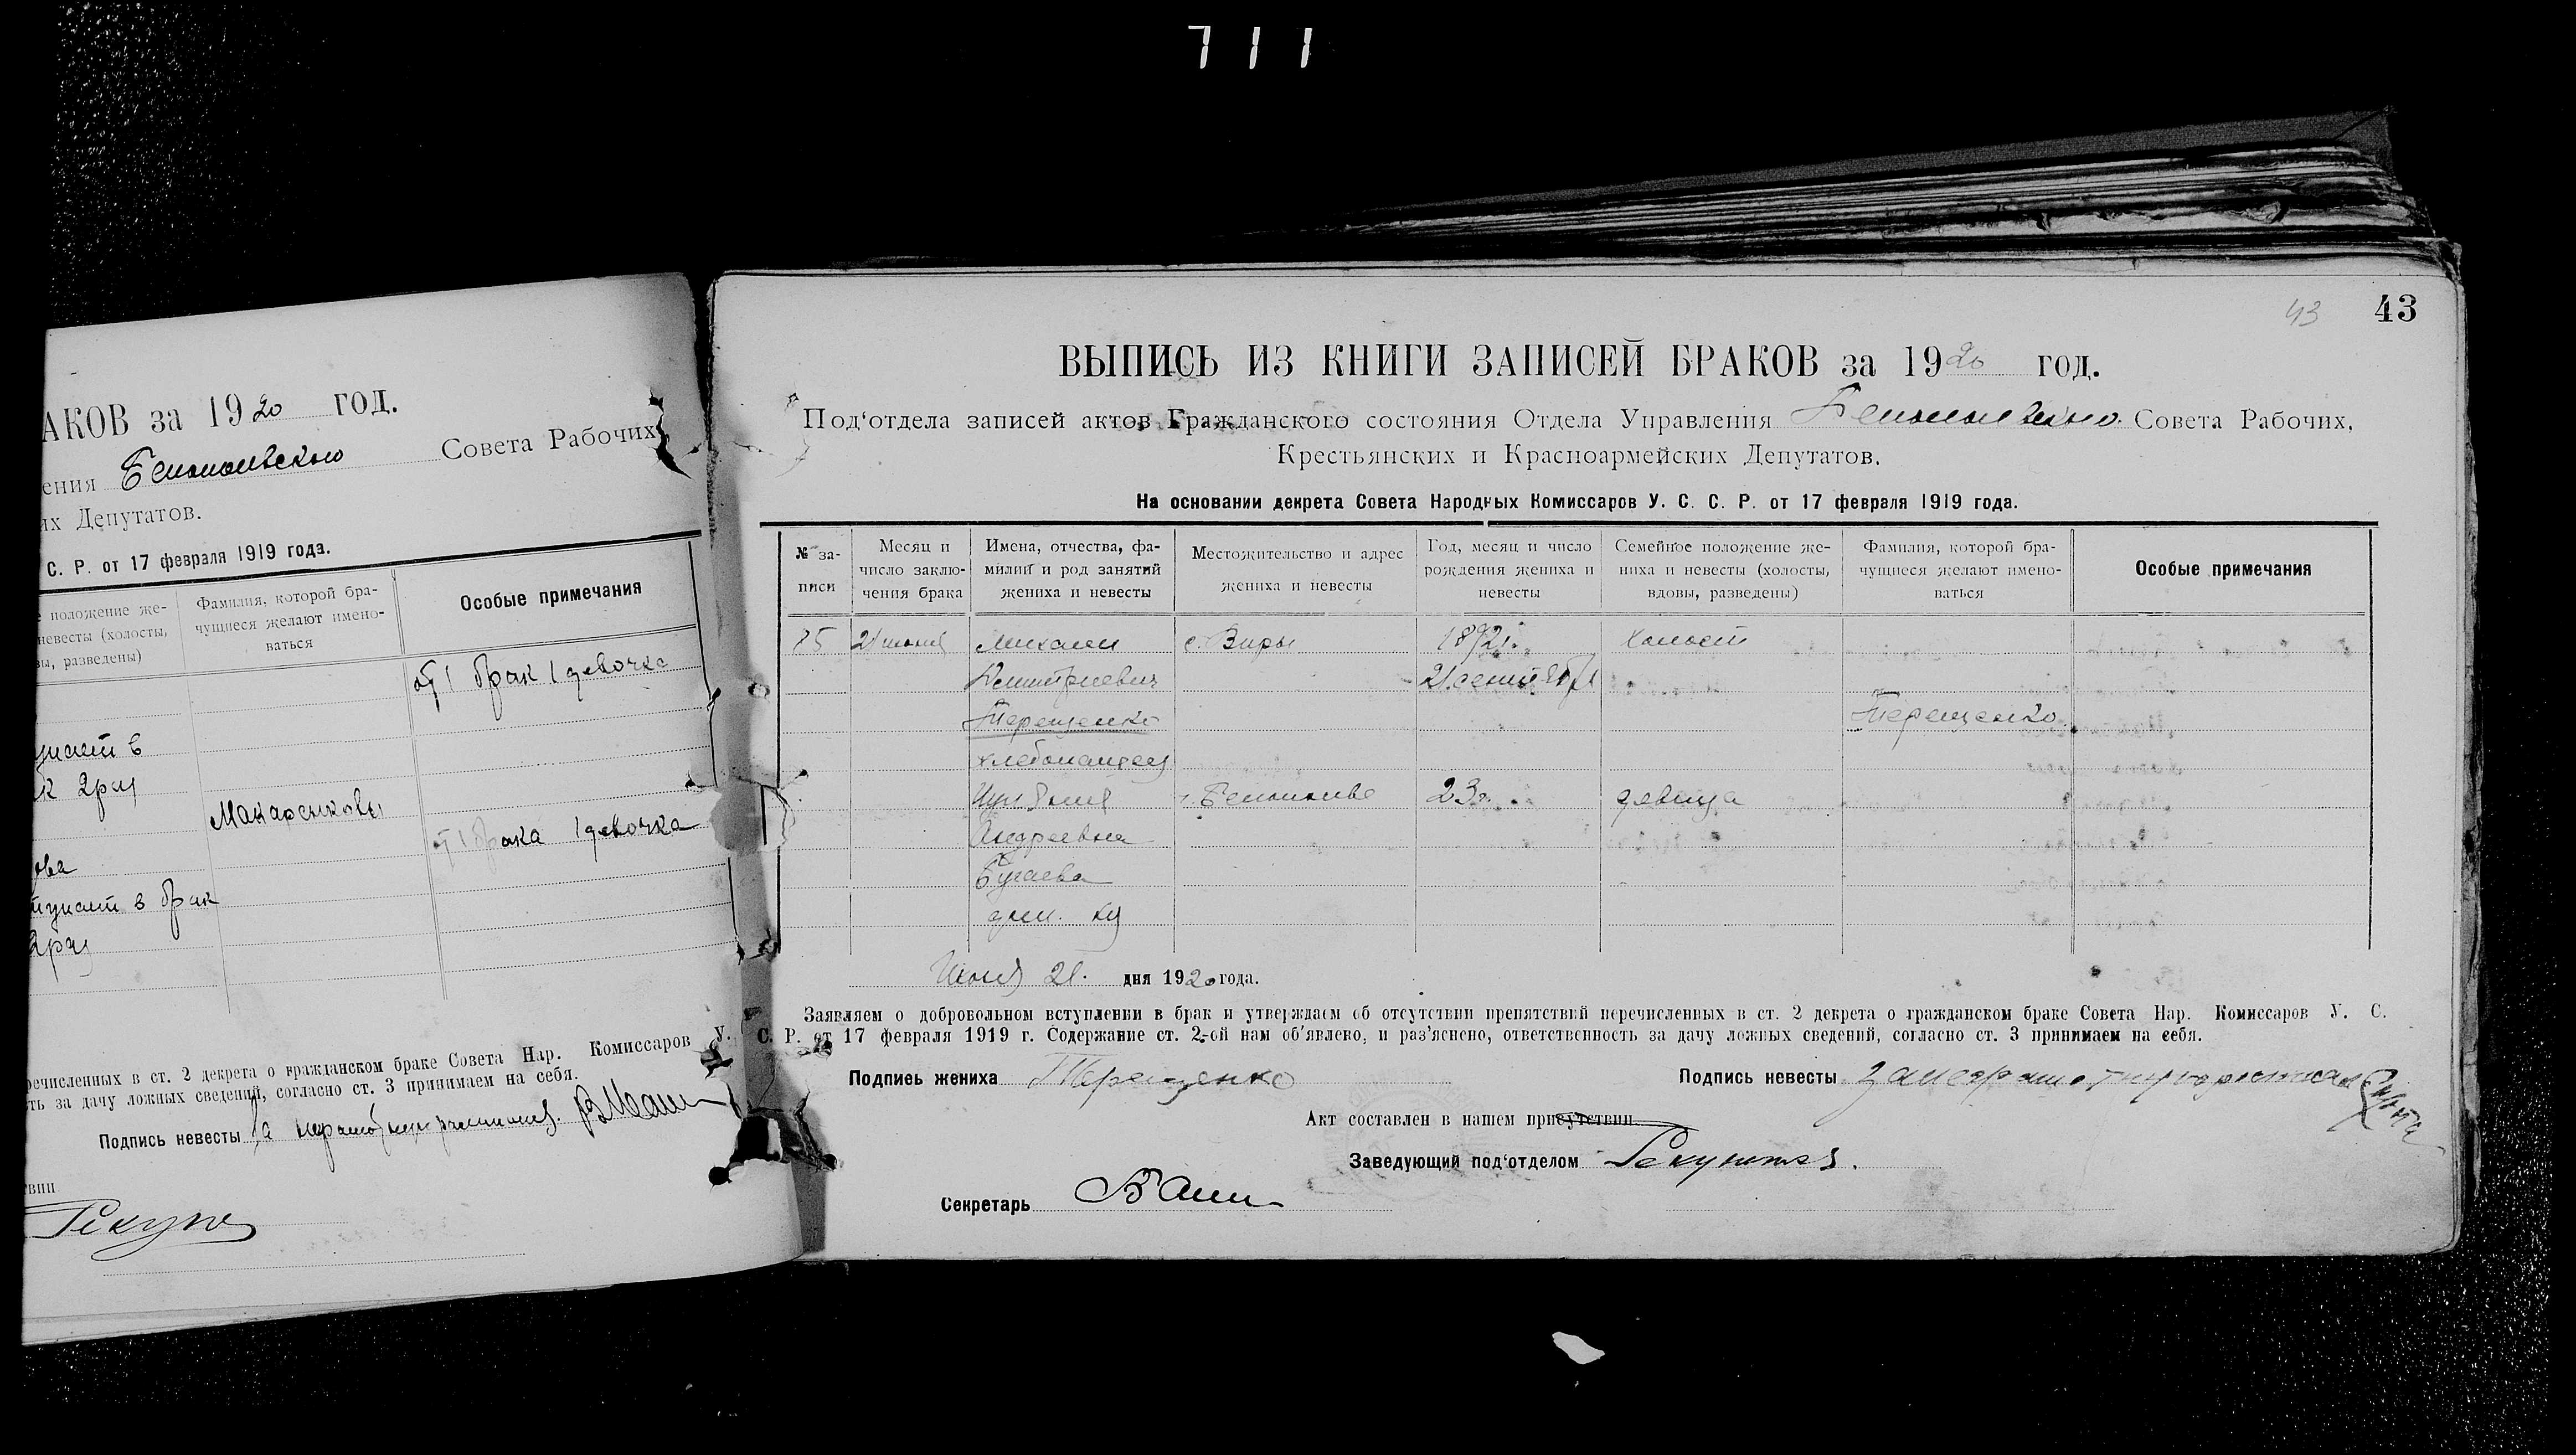 711
АКОВ за 1920 год.
ения Белопольского Совета Рабочих,
их Депутатов.
С. Р. от 17 февраля 1919 года.
е положение же-
невесты (холосты,
вы, разведены)
Фамилия, которой бра-
чущиеся желают имено-
ваться
Особые примечания
от 1 брак 1 девочка
упает в
Макаренковы
1 брака 1 девочка
ова
тупает в брак
речисленных в ст. 2 декрета о гражданском браке Совета Нар. Комиссаров У.
ть за дачу ложных сведений, согласно ст. 3 принимаем на себя.
Подпись невесты за
твии
43 43
ВЫПИСЬ ИЗ КНИГИ ЗАПИСЕЙ БРАКОВ за 1920 год.
Под‘отдела записей актов Гражданского состояния Отдела Управления Белопольского Совета Рабочих,
Крестьянских и Красноармейских Депутатов.
На основании декрета Совета Народных Комиссаров У. С. С. Р. от 17 февраля 1919 года.
№ за-
писи
Месяц и
число заклю-
чения брака
Имена, отчества, фа-
милии и род занятий
жениха и невесты
Местожительство и адрес
жениха и невесты
Год, месяц и число
рождения жениха и
невесты
Семейное положение же-
ниха и невесты (холосты,
вдовы, разведены)
Фамилия, которой бра-
чущиеся желают имено-
ваться
Особые примечания
Михаил с. Виры холост
Дмитриевич 21 сентября
Терещенко Терещенко
хлебопашец
г. Белополье 23 г. девица
Андреевна
Бугаева
21. дня 1920 года.
Заявляем о добровольном вступлении в брак и утверждаем об отсутствии препятствий перечисленных в ст. 2 декрета о гражданском браке Совета Нар. Комиссаров У. С.
С. Р. от 17 февраля 1919 г. Содержание ст. 2-ой нам об'явлено, и раз'яснено, ответственность за дачу ложных сведений, согласно ст. 3 принимаем на себя.
Подпись жениха Терещенко Подпись невесты
Акт составлен в нашем присутствии
Заведующий под‘отделом
Секретарь